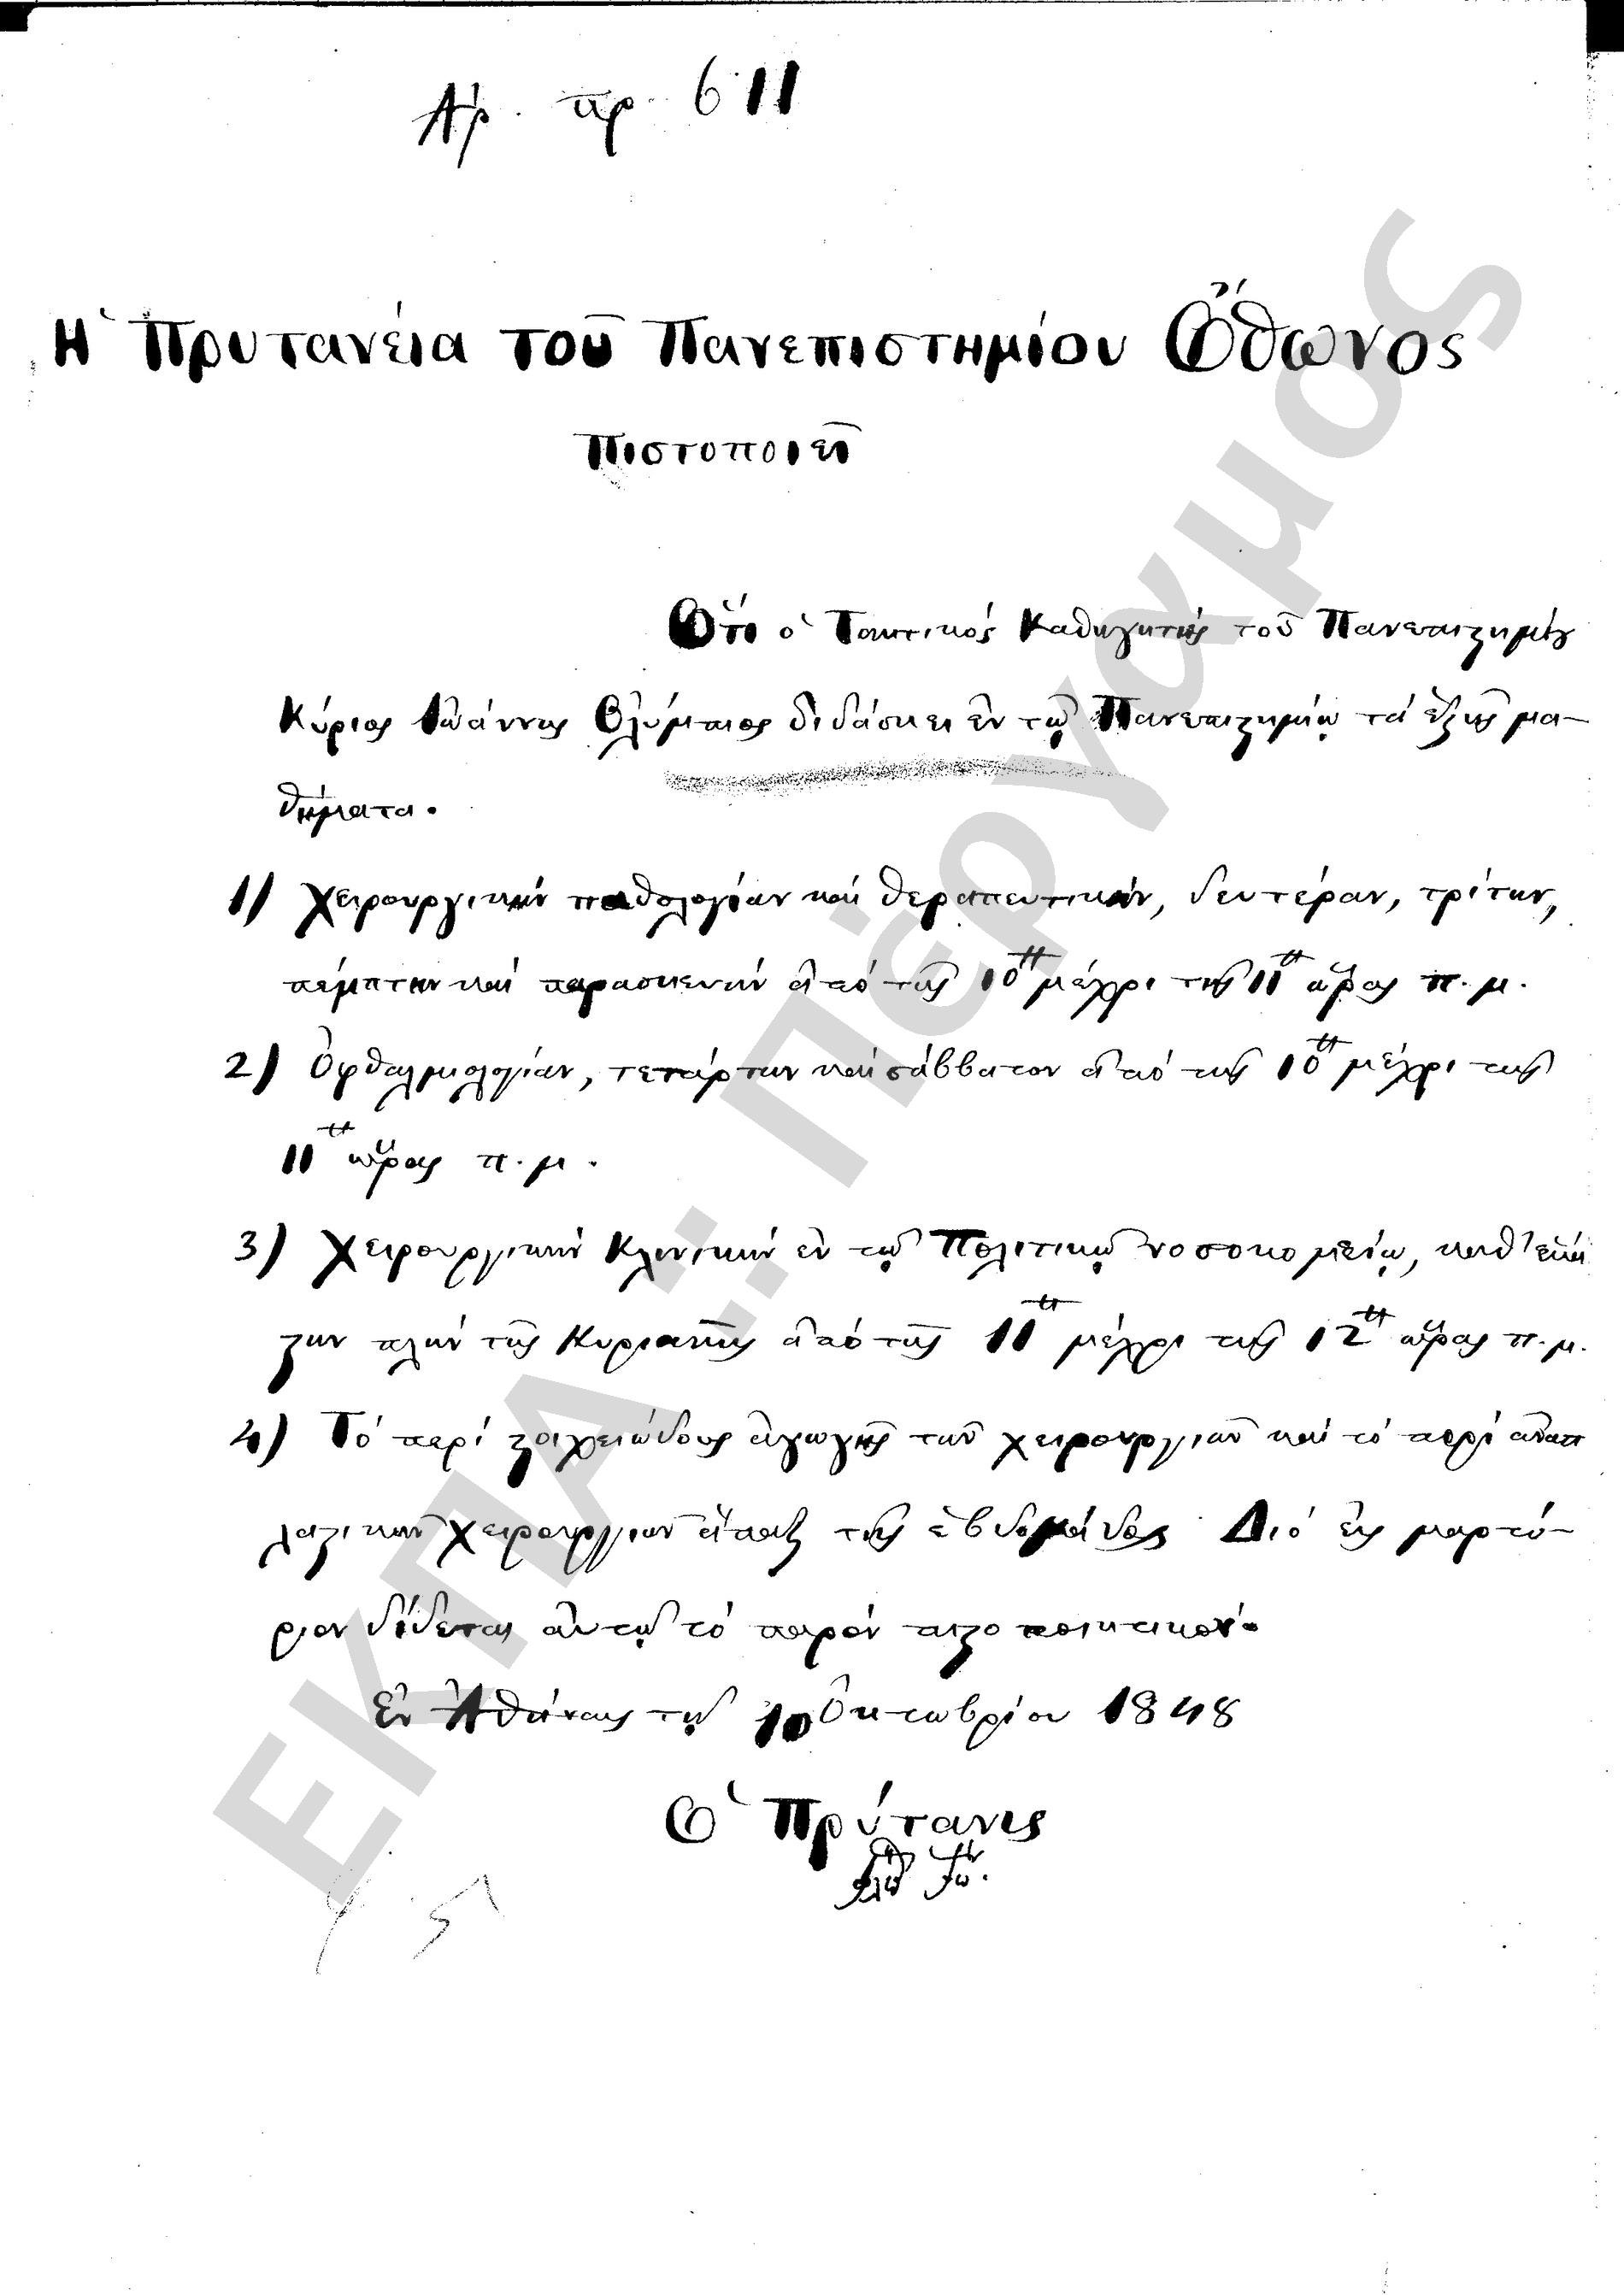 Αρ. πρ. 611
Ἡ Πρυτανεία τοῦ Πανεπιστημίου Ὄθωνος
Πιστοποιεῖ
Ὅτι ὁ Τακτικός Καθηγητής τοῦ Πανεπιστημίου
Κύριος Ἰωάννης Ὀλύμπιος διδάσκει ἐν τῷ Πανεπιστημίῳ τά ἑξῆς μα-
θήματα.
1) Χειρουργικήν παθολογίαν καί θεραπευτικήν, δευτέραν, τρίτην,
πέμπτην καί παρασκευήν ἀπό τῆς 10ης μέχρι τῆς 11ης ὥρας π.μ.
2) Ὀφθαλμολογίαν, τετάρτην καί σάββατον ἀπό τῆς 10ης μέχρι τῆς
11ης ὥρας π.μ.
3) Χειρουργικήν Κλινικήν ἐν τῷ Πολιτικῷ νοσοκομείῳ, καθ' ἑκά
στην πλήν τῆς Κυριακῆς ἀπό τῆς 11ης μέχρι τῆς 12ης ὥρας π.μ.
4) Τό περί στοιχειώδους ἀγωγῆς τῶν χειρουργιῶν καί τό περί ἀναπ
λαστικῶν χειρουργιῶν ἅπαξ τῆς ἑβδομάδος. Διό εἰς μαρτύ-
ριον δίδεται αὐτῷ τό παρόν πιστοποιητικόν.
Ἐν Ἀθήναις τῇ 10 Ὀκτωβρίου 1848
Ὁ Πρύτανις
ΕΚΠΑ: Πέργαμος